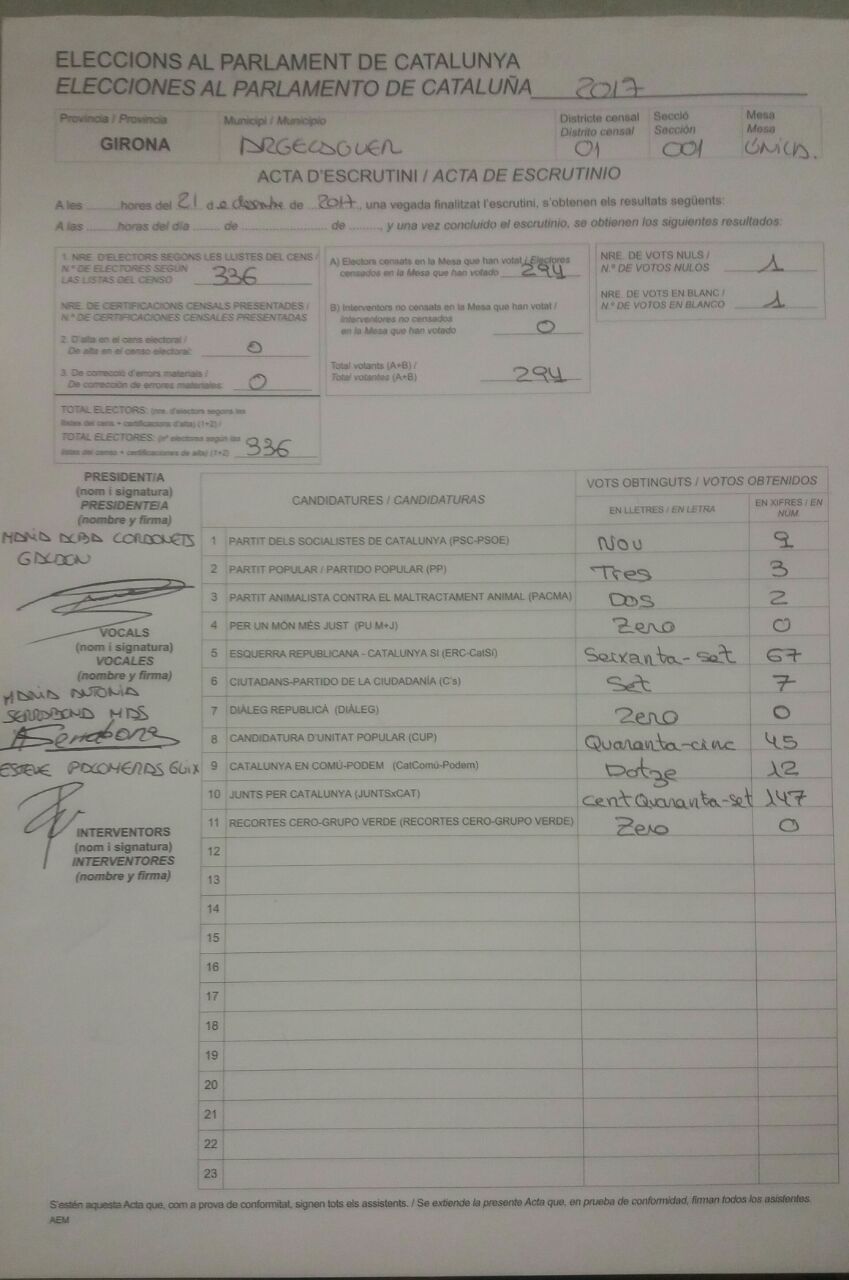 ELECCIONS AL PARLAMENT DE CATALUNYA
ELECCIONES AL PARLAMENTO DE CATALUÑA 2017
Província / Provincia
GIRONA
Municipi / Municipio
ARGELAGUER
Districte censal
Distrito censal
01
Secció
Sección
001
Mesa
Mesa
ÚNICA.
ACTA D'ESCRUTINI / ACTA DE ESCRUTINIO
A les ........hores del 21 de desembre de 2017, una vegada finalitzat l'escrutini, s'obtenen els resultats següents:
A las ........horas del día ........ de ........................ de ........, y una vez concluido el escrutinio, se obtienen los siguientes resultados:
1. NRE. D'ELECTORS SEGONS LES LLISTES DEL CENS /
N.º DE ELECTORES SEGÚN
LAS LISTAS DEL CENSO 336
NRE. DE CERTIFICACIONS CENSALS PRESENTADES /
N.º DE CERTIFICACIONES CENSALES PRESENTADAS
2. D'alta en el cens electoral /
De alta en el censo electoral: 0
3. De correcció d'errors materials /
De corrección de errores materiales: 0
TOTAL ELECTORS: (nre. d'electors segons les
llistes del cens + certificacions d'alta) (1+2) /
TOTAL ELECTORES: (nº electores según las
listas del censo + certificaciones de alta) (1+2) 336
A) Electors censats en la Mesa que han votat / Electores
censados en la Mesa que han votado 294
B) Interventors no censats en la Mesa que han votat /
Interventores no censados
en la Mesa que han votado 0
Total votants (A+B) /
Total votantes (A+B) 294
NRE. DE VOTS NULS /
N.º DE VOTOS NULOS 1
NRE. DE VOTS EN BLANC /
N.º DE VOTOS EN BLANCO 1
PRESIDENT/A
(nom i signatura)
PRESIDENTE/A
(nombre y firma)
MARIA ALBA CORDONETS
GALDON
VOCALS
(nom i signatura)
VOCALES
(nombre y firma)
MARIA ANTONIA
SERRABONA MAS
Serrabona
ESTEVE PALOMERAS GUIX
INTERVENTORS
(nom i signatura)
INTERVENTORES
(nombre y firma)
CANDIDATURES / CANDIDATURAS
VOTS OBTINGUTS / VOTOS OBTENIDOS
EN LLETRES / EN LETRA
EN XIFRES / EN
NÚM.
1 PARTIT DELS SOCIALISTES DE CATALUNYA (PSC-PSOE) Nou 9
2 PARTIT POPULAR / PARTIDO POPULAR (PP) Tres 3
3 PARTIT ANIMALISTA CONTRA EL MALTRACTAMENT ANIMAL (PACMA) Dos 2
4 PER UN MÓN MÉS JUST (PU M+J) Zero 0
5 ESQUERRA REPUBLICANA - CATALUNYA SÍ (ERC-CatSí) Seixanta-set 67
6 CIUTADANS-PARTIDO DE LA CIUDADANÍA (C's) Set 7
7 DIÀLEG REPUBLICÀ (DIÀLEG) Zero 0
8 CANDIDATURA D'UNITAT POPULAR (CUP) Quaranta-cinc 45
9 CATALUNYA EN COMÚ-PODEM (CatComú-Podem) Dotze 12
10 JUNTS PER CATALUNYA (JUNTSxCAT) cent Quaranta-set 147
11 RECORTES CERO-GRUPO VERDE (RECORTES CERO-GRUPO VERDE) Zero 0
12
13
14
15
16
17
18
19
20
21
22
23
S'estén aquesta Acta que, com a prova de conformitat, signen tots els assistents. / Se extiende la presente Acta que, en prueba de conformidad, firman todos los asistentes.
AEM